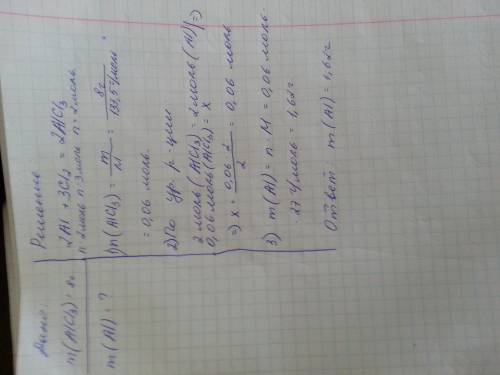 Дано:
m(AlCl3) = 8г
m(Al) = ?
Решение:
2Al + 3Cl2 = 2AlCl3
n=2моль n=3моль n=2моль
1) n(AlCl3) = m/M = 8г/133,5г/моль =
= 0,06 моль.
2) По ур. р-ции
2 моль(AlCl3) = 2 моль(Al) =>
0,06 моль(AlCl3) = x
=> x = 0,06 · 2/2 = 0,06 моль
3) m(Al) = n · M = 0,06 моль ·
· 27 г/моль = 1,62г.
Ответ: m(Al) = 1,62г